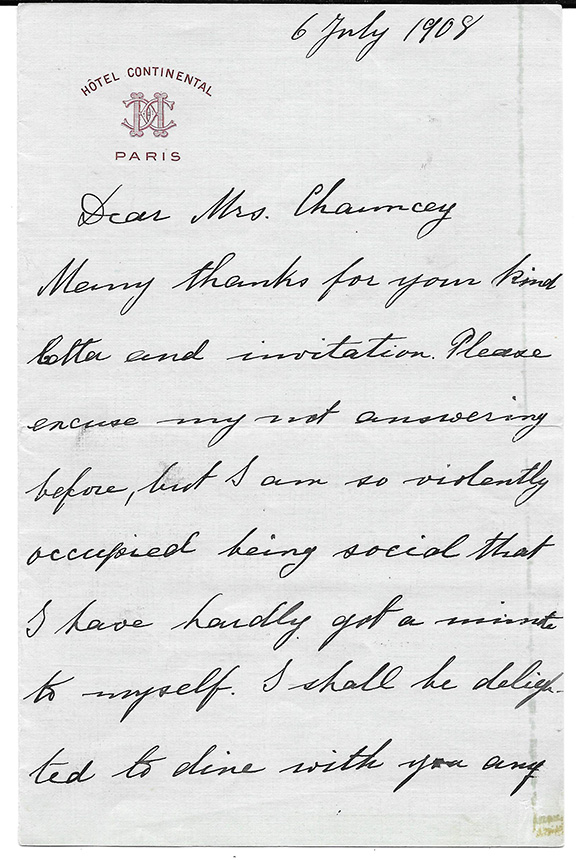 6 July 1908
HÔTEL CONTINENTAL
PARIS
Dear Mrs. Chauncey
Many thanks for your kind
letter and invitation. Please
excuse my not answering
before, but I am so violently
occupied being social that
I have hardly got a minute
to myself. I shall be deligh-
ted to dine with you any